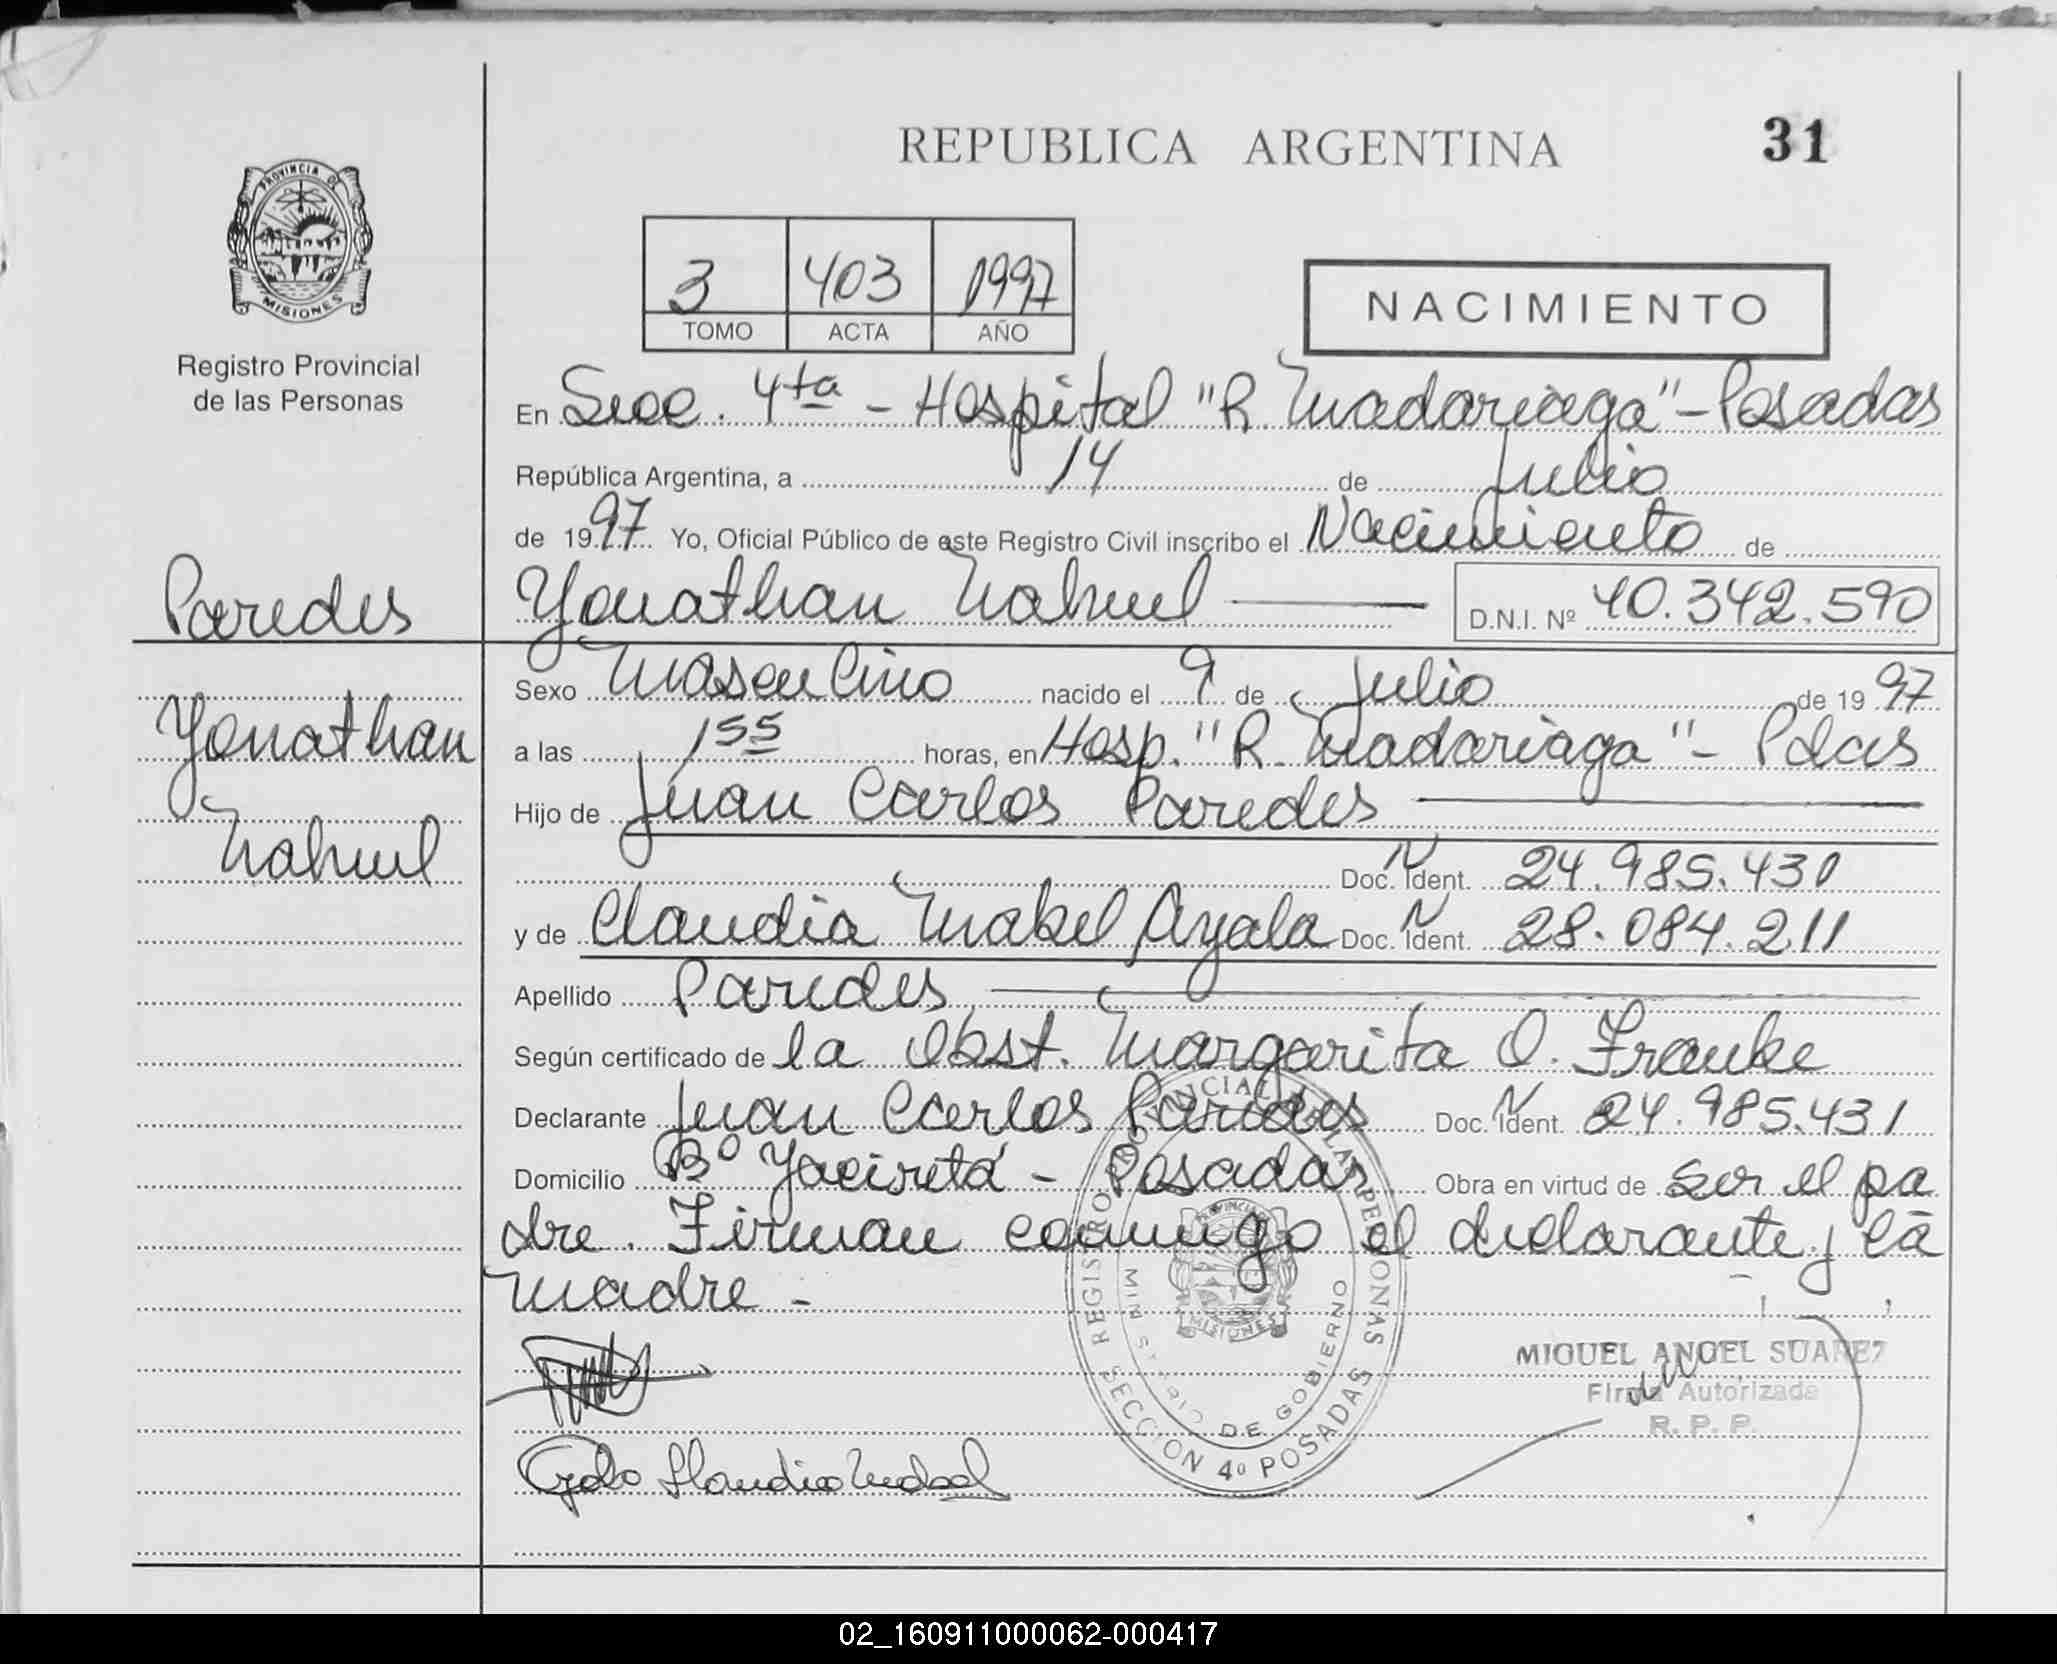 REPUBLICA ARGENTINA 31
PROVINCIA DE
MISIONES
Registro Provincial
de las Personas
3 403 1997
TOMO ACTA AÑO
NACIMIENTO
En Secc. 4ta - Hospital "R. Madariaga" - Posadas
República Argentina, a 14 de Julio
de 1997 Yo, Oficial Público de este Registro Civil inscribo el Nacimiento de
Paredes
Yonathan Nahuel D.N.I. Nº 40.342.590
Sexo Masculino nacido el 9 de Julio de 1997
Yonathan
a las 1 55 horas, en Hosp. "R. Madariaga" - Pdas
Hijo de Juan Carlos Paredes
Nahuel
Doc. Ident. N 24.985.431
y de Claudia Mabel Ayala Doc. Ident. N 28.084.211
Apellido Paredes
Según certificado de la Obst. Margarita O. Franke
Declarante Juan Carlos Paredes Doc. Ident. N 24.985.431
Domicilio Bº Yaciretá - Posadas Obra en virtud de ser el pa
dre. Firman conmigo el declarante y la
madre -
REGISTRO PROVINCIAL DE LAS PERSONAS
MINISTERIO DE GOBIERNO
PROVINCIA DE
MISIONES
SECCION 4º POSADAS
MIGUEL ANGEL SUAREZ
Firma Autorizada
R. P. P.
02_160911000062-000417